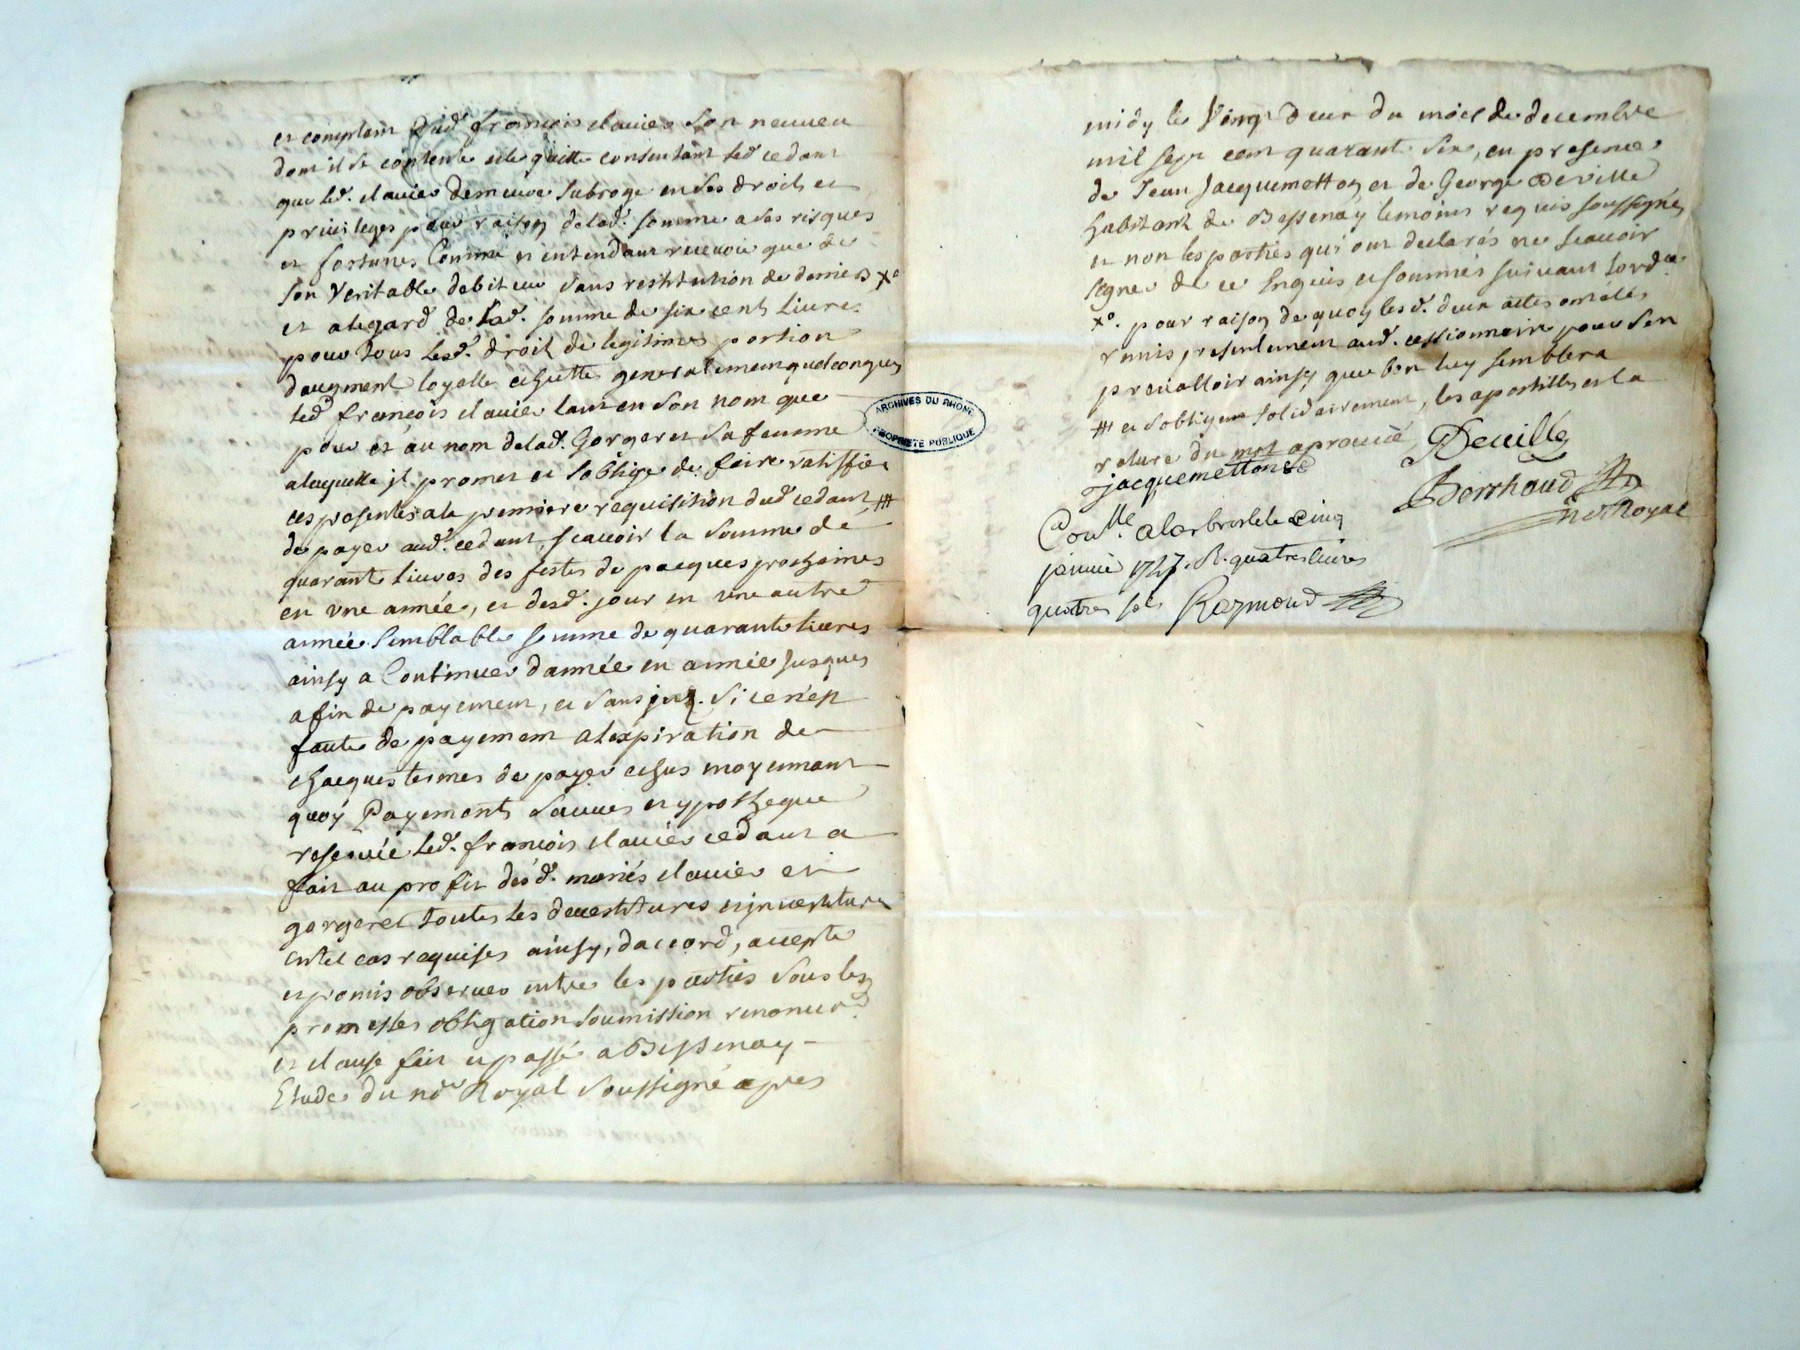 et comptent dud. françois clavier son neuveu
dont il se contente et le quitte consentant led. cedant
que led. clavier demeure subrogé en ses droits et
privileges pour raison delad. somme a ses risques
et fortunes comme et entendant recevoir que de
son veritable debiteur sans restitution de deniers x°
et alegard de lad. somme de six cent livres
pour tous lesd. droit de legitimes portion
daugment loyalle echutte generalement quelconques
led. françois clavier tant en son nom que
pour et au nom delad. Gorgeret sa femme
alaquelle jl promet et soblige de faire ratiffier
ces presentes ala premiere requisition dud. cedant #
de payer aud. cedant, scavoir la somme de
quarante livres des festes de pacques prochaines
en une année, et desd. jour en une autre
année semblable somme de quarante livres
ainsy a continuer dannée en année jusques
afin de payement, et sans jnt. si ce n'est
faute de payement alexpiration de
chacques termes de payer echus moyennant
quoy Payements sauves et ypotheque
reservée led. françois clavier cedant a
fait au profit desd. mariés clavier et
gorgeret toutes les devestitures et investitures
entel cas requises ainsy, daccord, accepte
et promis observer entre les parties sous les
promesses obligation soumission renonc.
et clause fait et passé a Bessenay
Etude du nore Royal soussigné apres
midy le vingt deux du mois de decembre
mil sept cent quarant six, en presence
de Jean Jacquemetton et de George Deville
habitant de Bessenay temoins requis soussignés
et non les parties qui ont declarés ne scavoir
signer de ce enquis et sommés suivant lord.ce
x°. pour raison de quoy lesd. deux actes ont étés
remis presentement aud. cessionnaire pour sen
prevalloir ainsy que bon luy semblera
# et sobligent solidairement, les apostilles et la
rature du mot aprouvé Deville
jacquemetton
Berthoud
nore Royal
Conlle. alarbresle le cinq
janvier 1747. R. quatre livres
quatre sols Raymond
ARCHIVES DU RHONE
PROPRIETE PUBLIQUE